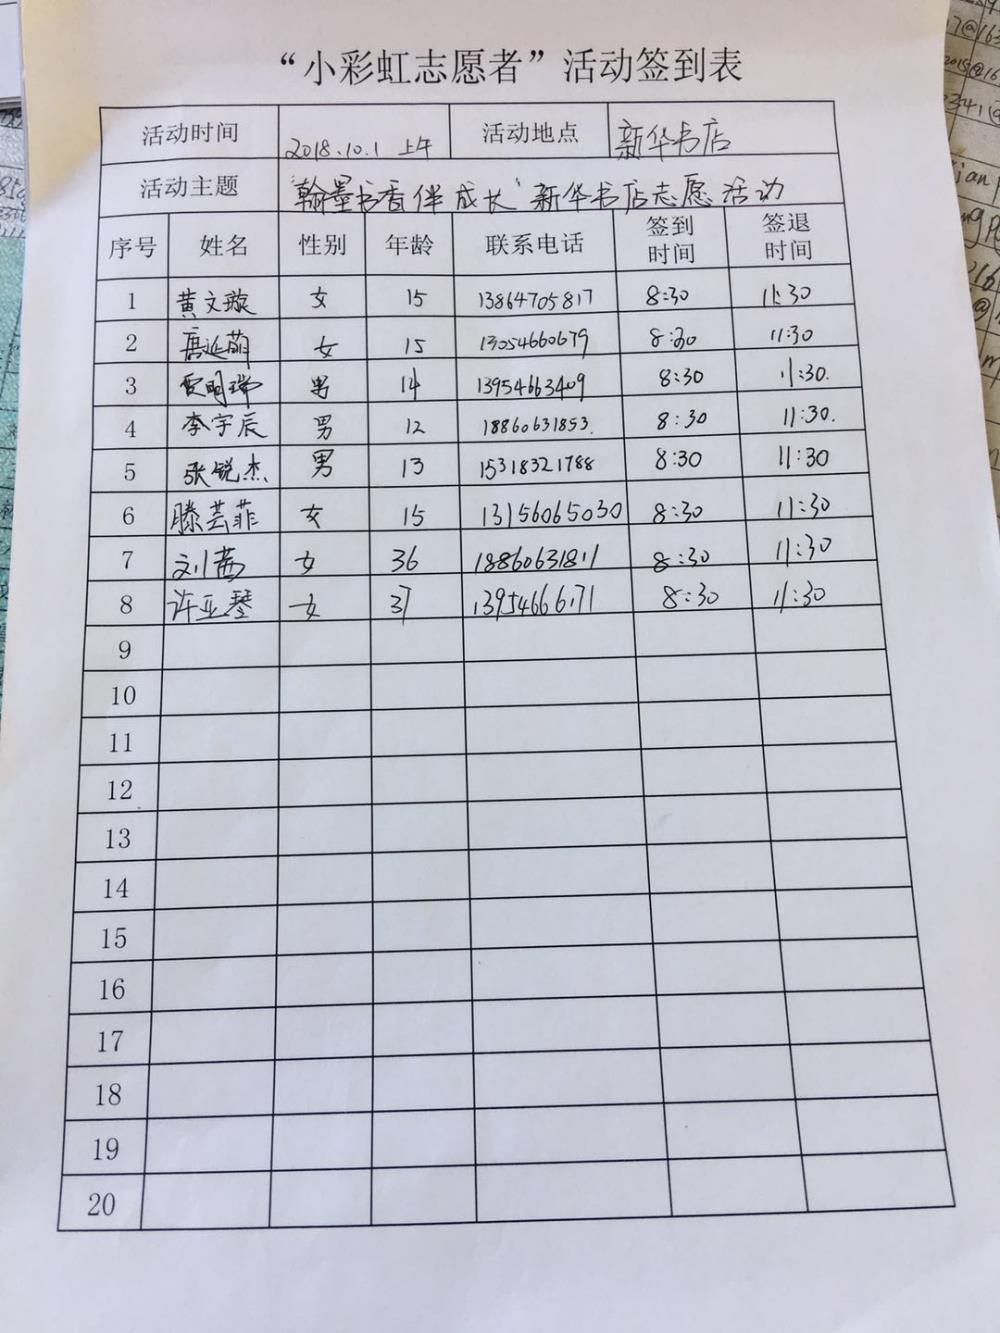 “小彩虹志愿者”活动签到表
活动时间 2018.10.1 上午 活动地点 新华书店
活动主题 “翰墨书香伴成长”新华书店志愿活动
序号 姓名 性别 年龄 联系电话 签到时间 签退时间
1 黄文璇 女 15 13864705817 8:30 11:30
2 唐延萌 女 15 13054660679 8:30 11:30
3 贾明瑞 男 14 13954663409 8:30 11:30.
4 李宇辰 男 12 18860631853. 8:30 11:30.
5 张锐杰 男 13 15318321788 8:30 11:30
6 滕芸菲 女 15 13156065030 8:30 11:30
7 刘茜 女 36 18860631811 8:30 11:30
8 许亚琴 女 37 13954666171 8:30 11:30
9
10
11
12
13
14
15
16
17
18
19
20